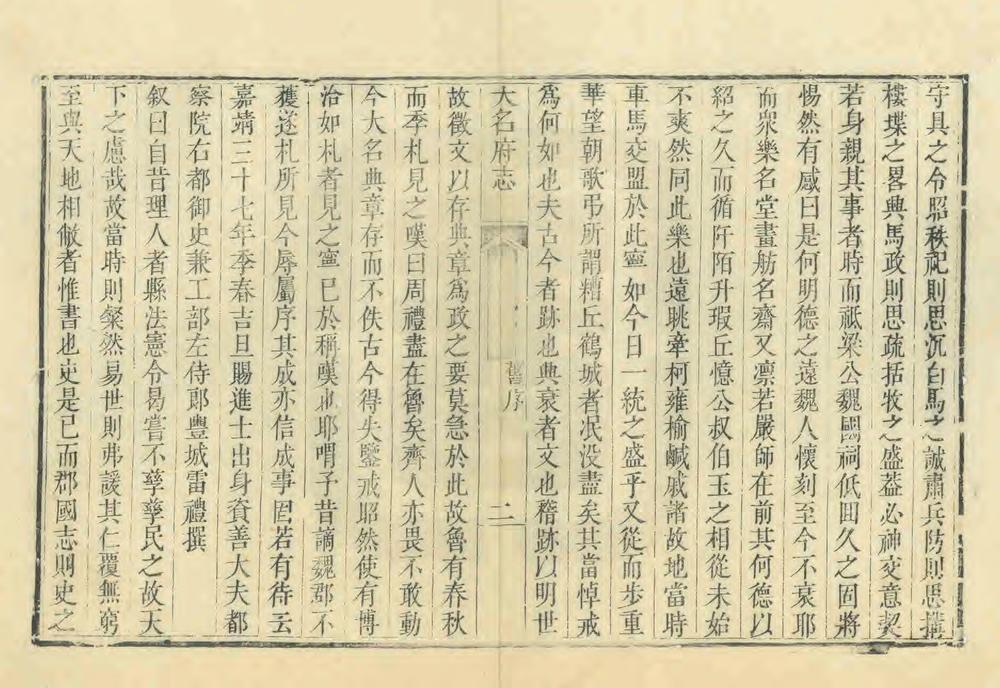 守具之令昭秩祀則思沉白馬之誠肅兵防則思搆
樓堞之畧典馬政則思疏括牧之盛葢必神交意契
若身親其事者時而祗梁公魏國祠低田久之固將
惕然有感曰是何明德之遠魏人懷刻至今不衰耶
而眾樂名堂畫舫名齋又凛若嚴師在前其何德以
紹之久而循阡陌升瑕丘憶公叔伯玉之相從未始
不爽然同此樂也遠眺牽柯雍榆鹹戚諸故地當時
車馬交盟於此寧如今日一統之盛乎又從而步重
華望朝歌弔所謂糟丘鶴城者泯没盡矣其當悼戒
為何如也夫古今者跡也典衰者文也稽跡以明世
大名府志
舊序
二
故徵文以存典章為政之要莫急於此故魯有春秋
而季札見之嘆曰周禮盡在魯矣齊人亦畏不敢動
今大名典章存而不佚古今得失鑒戒昭然使有博
洽如札者見之寧已於稱嘆也耶喟予昔謫魏郡不
獲遂札所見今辱屬序其成亦信成事固若有待云
嘉靖三十七年季春吉旦賜進士出身資善大夫都
察院右都御史兼工部左侍郎豐城雷禮撰
叙曰自昔理人者縣法憲令曷嘗不孳孳民之故天
下之慮哉故當時則粲然易世則弗諼其仁覆無窮
至與天地相敝者惟書也史是已而郡國志則史之